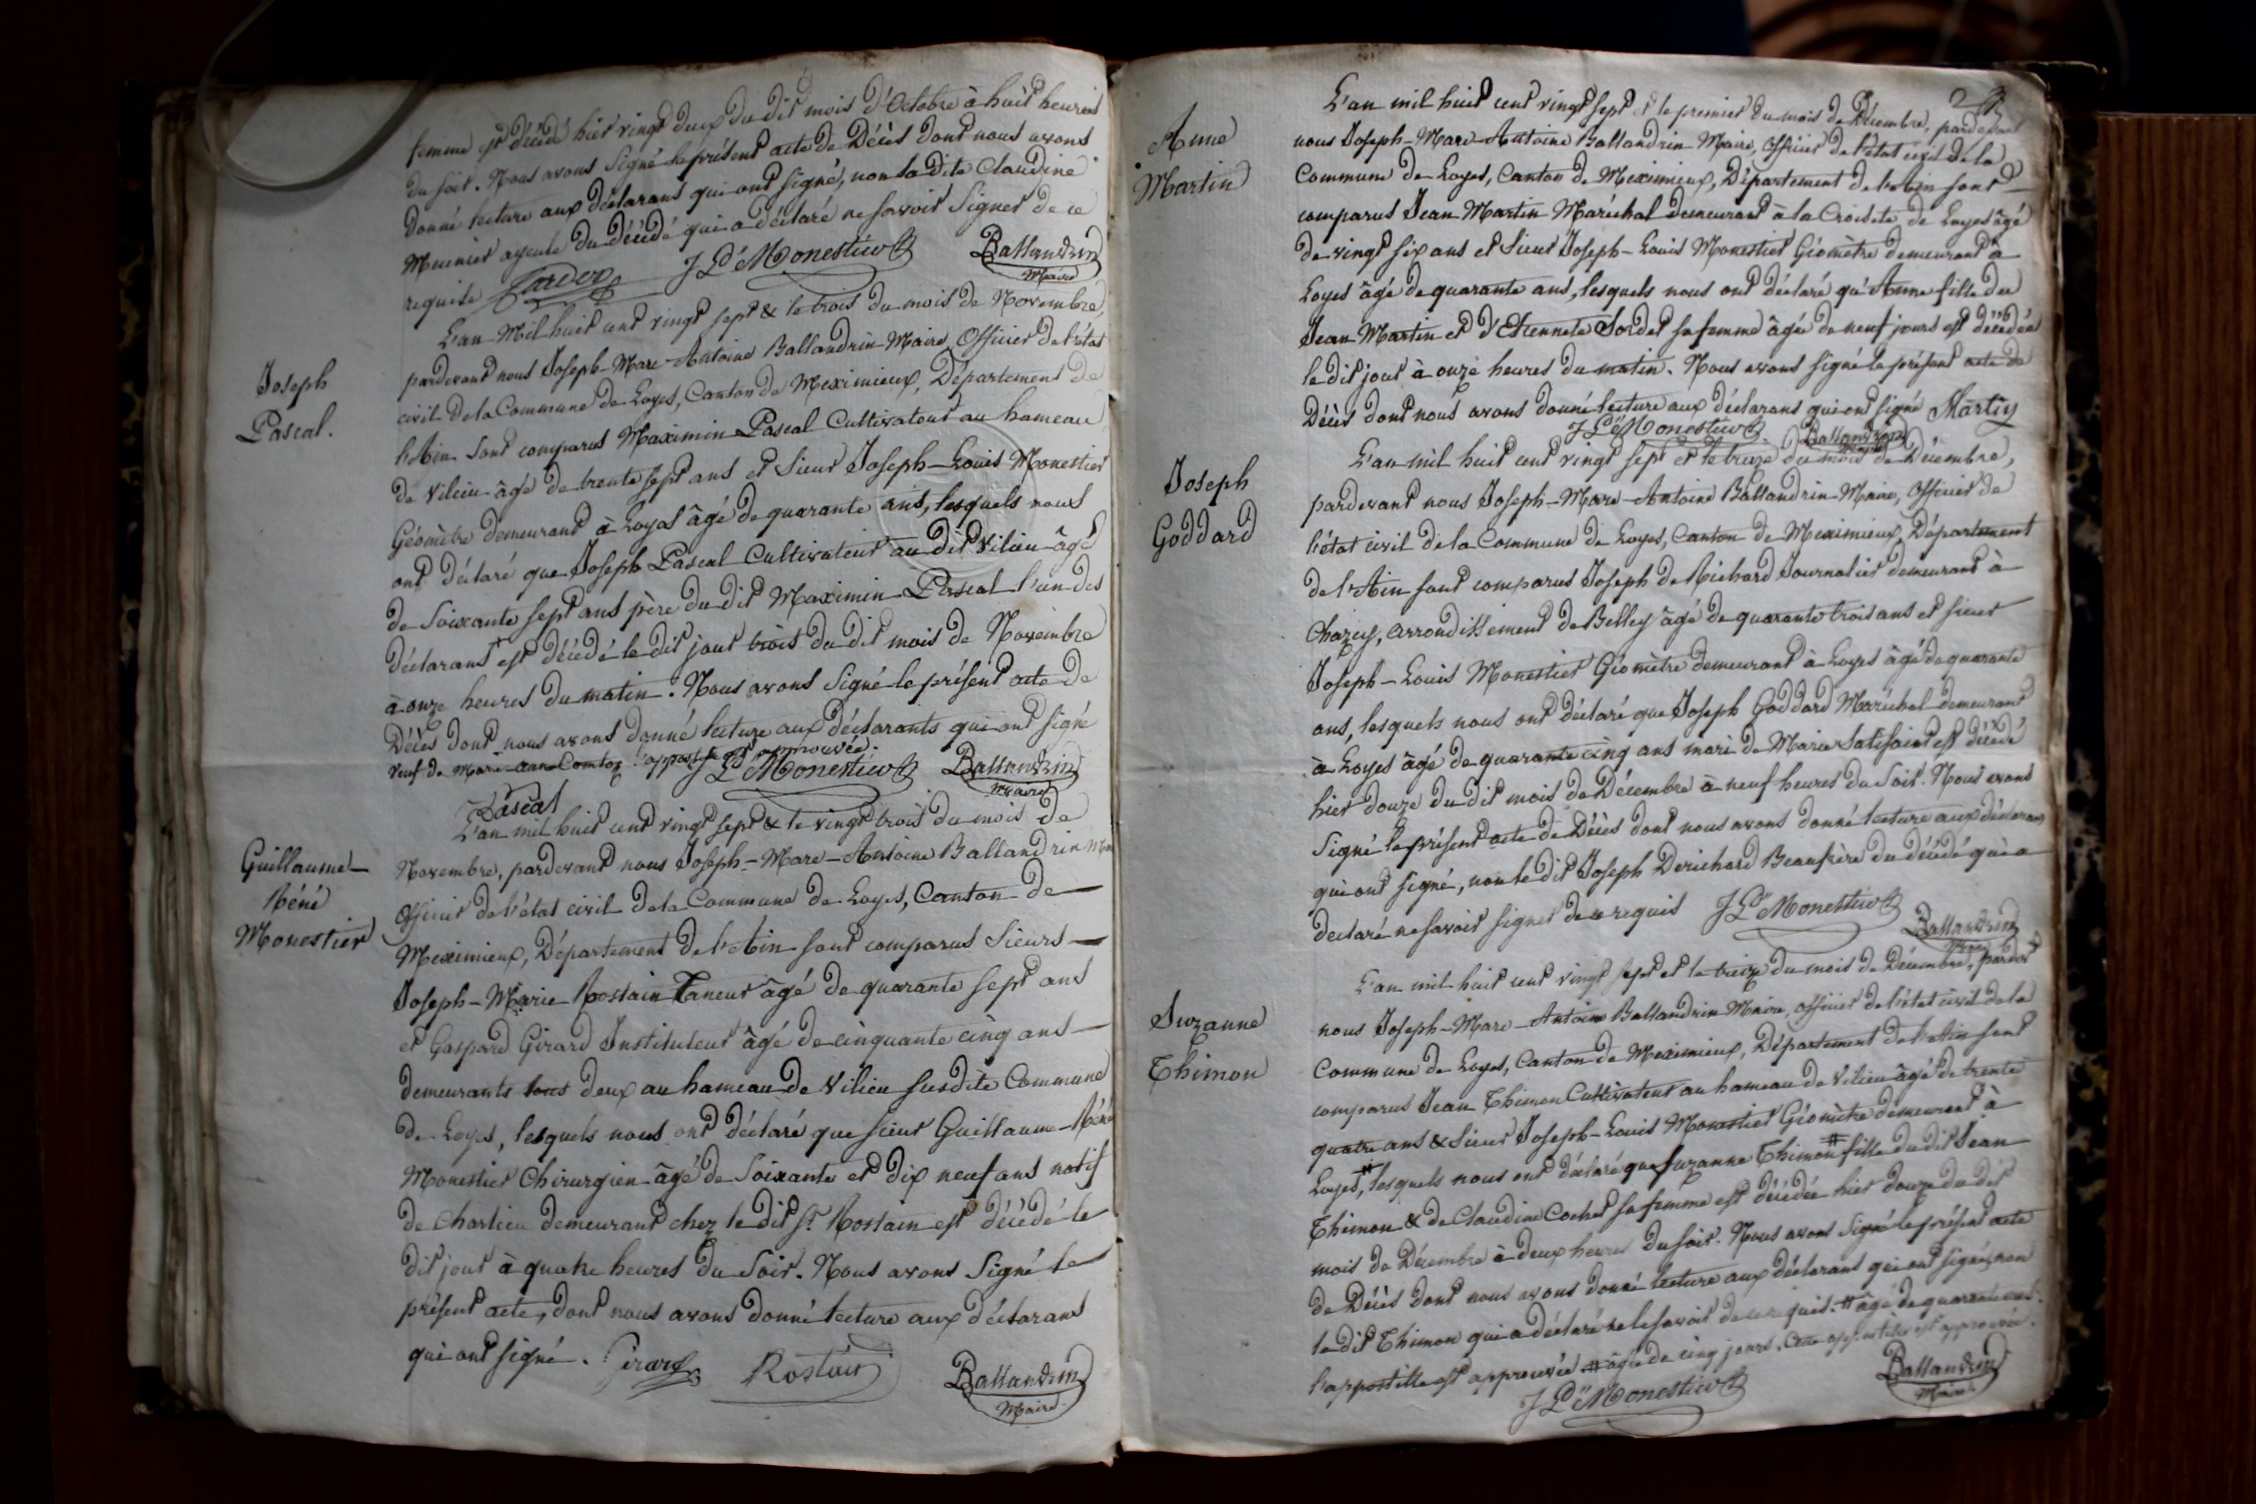 femme est décédé hier vingt deux du dit mois d'Octobre à huit heures
du soir. Nous avons signé le présent acte de Décès dont nous avons
donné lecture aux déclarans qui ont signé, non la dite Claudine
Meunier ayeule du décédé qui a déclaré ne savoir signer de ce
requise JLs Monestier Ballandrin
Maire
Joseph
Pascal.
L'an Mil huit cent vingt sept & le trois du mois de Novembre,
pardevant nous Joseph-Marc-Antoine Ballandrin Maire, Officier de l'état
civil de la Commune de Loyes, Canton de Meximieux, Département de
l'Ain sont comparus Maximin Pascal Cultivateur au hameau
de Vilieu âgé de trente sept ans et Sieur Joseph-Louis Monestier
Géomètre demeurant à Loyes âgé de quarante ans, lesquels nous
ont déclaré que Joseph Pascal Cultivateur au dit Vilieu âgé
de soixante sept ans père du dit Maximin Pascal l'un des
déclarans est décédé le dit jour trois du dit mois de Novembre
à onze heures du matin. Nous avons signé le présent acte de
Décès dont nous avons donné lecture aux déclarants qui ont signé
veuf de Marie-anne Comtoz l'apostille est approuvée.
JLs Monestier Ballandrin
Maire
Pascal
Guillaume
Réné
Monestier
L'an mil huit cent vingt sept & le vingt trois du mois de
Novembre, pardevant nous Joseph-Marc-Antoine Ballandrin
Officier de l'état civil de la Commune de Loyes, Canton de
Meximieux, Département de l'Ain sont comparus Sieurs
Joseph-Marie Rostain Taneur âgé de quarante sept ans
et Gaspard Girard Instituteur âgé de cinquante cinq ans
demeurants tous deux au hameau de Vilieu susdite Commune
de Loyes, lesquels nous ont déclaré que sieur Guillaume Réné
Monestier Chirurgien âgé de Soixante et dix neuf ans natif
de Charlieu demeurant chez le dit Sr. Rostain est décédé le
dit jour à quatre heures du Soir. Nous avons Signé le
présent acte, dont nous avons donné lecture aux déclarans
qui ont signé. Girard Rostain Ballandrin
Maire
Anne
Martin
L'an mil huit cent vingt sept et le premier du mois de Décembre, pardevant
nous Joseph-Marc-Antoine Ballandrin Maire, Officier de l'état civil de la
Commune de Loyes, Canton de Meximieux, Département de l'Ain sont
comparus Jean Martin Maréchal demeurant à la Croisete de Loyes âgé
de vingt six ans et Sieur Joseph-Louis Monestier Géomètre demeurant à
Loyes âgé de quarante ans, lesquels nous ont déclaré qu'Anne fille du
Jean Martin et d'Etiennete Sordet sa femme âgée de neuf jours est décédée
le dit jour à onze heures du matin. Nous avons signé le présent acte de
Décès dont nous avons donné lecture aux déclarans qui ont signé Martin
JLs Monestier Ballandrin
Maire
Joseph
Goddard
L'an mil huit cent vingt sept et le treize du mois de Décembre,
pardevant nous Joseph-Marc-Antoine Ballandrin Maire, Officier de
l'état civil de la Commune de Loyes, Canton de Meximieux, Département
de l'Ain sont comparus Joseph de Richard Journalier demeurant à
Chazey, arrondissement de Belley âgé de quarante trois ans et sieur
Joseph-Louis Monestier Géomètre demeurant à Loyes âgé de quarante
ans, lesquels nous ont déclaré que Joseph Goddard Maréchal demeurant
à Loyes âgé de quarante cinq ans mari de Marie Satifaint est décédé
hier douze du dit mois de Décembre à neuf heures du Soir. Nous avons
Signé le présent acte de Décès dont nous avons donné lecture aux déclarans
qui ont signé, non le dit Joseph Derichard Beaufrère du décédé qui a
declaré ne savoir signer de ce requis JLs Monestier Ballandrin
Maire
Suzanne
Thimon
L'an mil huit cent vingt sept et le treize du mois de Décembre, pardevt
nous Joseph-Marc-Antoine Ballandrin Maire, officier de l'état civil de la
Commune de Loyes, Canton de Meximieux, Département de l'Ain sont
comparus Jean Thimon Cultivateur au hameau de Vilieu âgé de trente
quatre ans & Sieur Joseph-Louis Monestier Géomètre demeurant à
Loyes,# lesquels nous ont déclaré que Suzanne Thimon # fille du dit Jean
Thimon & de Claudine Cochet sa femme est décédée hier douze du dit
mois de Décembre à deux heures du soir. Nous avons signé le présent acte
de Décès dont nous avons donné lecture aux déclarans qui ont signé, non
le dit Thimon qui a déclaré ne le savoir de ce requis. # âgé de quarante ans.
l'appostille est approuvée # âgée de cinq jours. Cette appostille est approuvée.
JLs Monestier Ballandrin
Maire